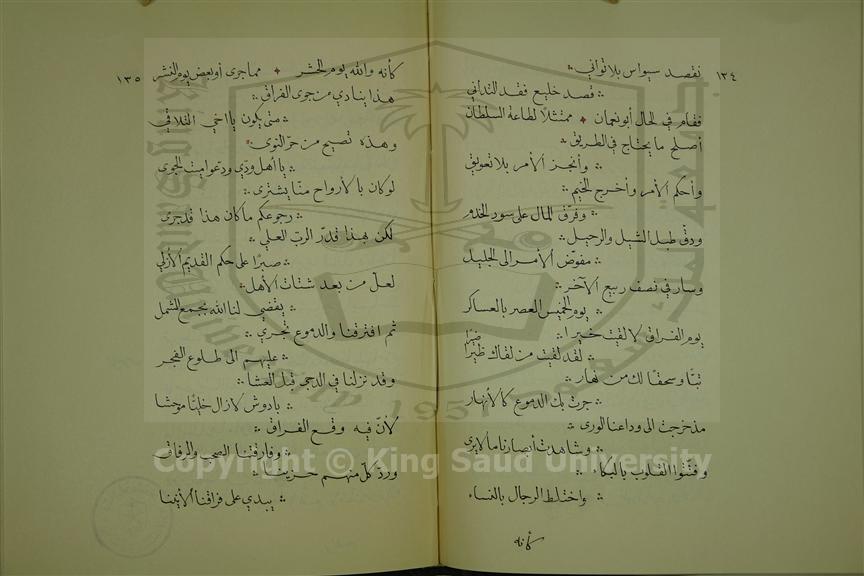 ١٣٤
نقصد سيواس بلا تواني
قصد خليع فقد التداني
فقام في الحال أبو نعمان ممتثلاً لطاعة السلطان
أصلح ما يحتاج في الطريق
وأنجز الأمر بلا تعويق
وأحكم الأمر وأخرج الخيم
وفرّق المال على سود الخدم
ودق طبل الشيل والرحيل
مفوّض الأمر الى الجليل
وسار في نصف ربيع الآخر
يوم الخميس العصر بالعساكر
يوم الفراق لا لقيت خيرا
لقد لقيت من لقاك ضيرا
تبّا وسحقا لك من نهار
جرت بك الدموع كالأنهار
مذ خرجت الى وداعنا الورى
وشاهدت أبصارنا ما لا يرى
وفتّتوا القلوب بالبكاء
واختلط الرجال بالنساء
كأنه
١٣٥
كأنه والله يوم الحشر مما جرى أو بعض يوم النشر
هذا ينادي من جوى الفراق
متى يكون يا اخي التلاقي
وهذه تصيح من حرّ النوى
يا أهل ودّي ودعوا ميت الجوى
لو كان بالأرواح منّا يشترى
رجوعكم ما كان هذا قد جرى
لكن بهذا قدّر الرب العلي
صبرًا على حكم القديم الأزلي
لعلّ من بعد شتات الأهل
يقضي لنا الله بجمع الشمل
ثم افترقنا والدموع تجري
عليهم الى طلوع الفجر
وقد نزلنا في الدجى قبل العشا
بادوش لا زال خليًا موحشا
لأنّ فيه وقع الفراق
وفارقتنا الصحب والرفاق
وردّ كلّ منهم حزينا
يبدي على فراقنا الأنينا
King Saud University
1957
Copyright © King Saud University